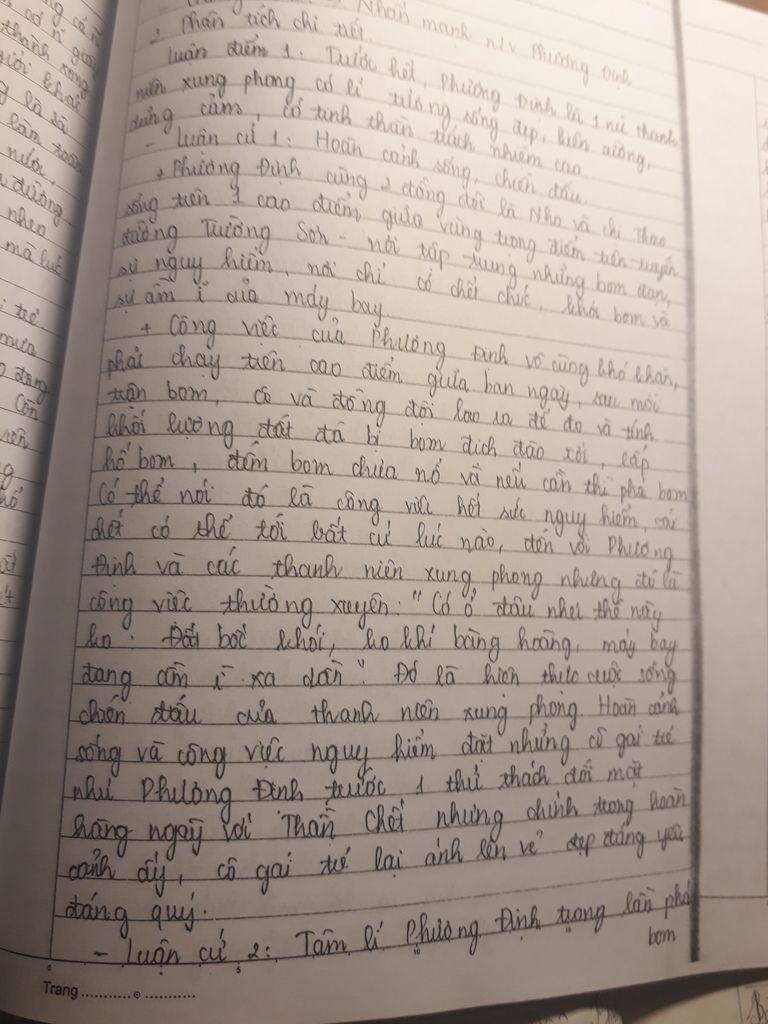 Nhấn mạnh n/v Phương Định
2. Phân tích chi tiết.
Luận điểm 1: Trước hết, Phương Định là 1 nữ thanh
niên xung phong có lí tưởng sống đẹp, kiên cường,
dũng cảm, có tinh thần trách nhiệm cao
- Luận cứ 1: Hoàn cảnh sống, chiến đấu.
+ Phương Định cùng 2 đồng đội là Nho và chị Thao
sống trên 1 cao điểm giữa vùng trọng điểm trên tuyến
đường Trường Sơn - nơi tập trung những bom đạn,
sự nguy hiểm, nơi chỉ có chết chóc, khói bom và
sự ầm ĩ của máy bay.
+ Công việc của Phương Định vô cùng khó khăn,
phải chạy trên cao điểm giữa ban ngày, sau mỗi
trận bom, cô và đồng đội lao ra để đo và tính
khối lượng đất đá bị bom địch đào xới, lấp
hố bom, đếm bom chưa nổ và nếu cần thì phá bom
Có thể nói đó là công việc hết sức nguy hiểm, cái
chết có thể tới bất cứ lúc nào, đến với Phương
Định và các thanh niên xung phong nhưng đó là
công việc thường xuyên: "Có ở đâu như thế này
ko: Đất bốc khói, ko khí bàng hoàng, máy bay
đang ầm ì xa dần" Đó là hiện thực cuộc sống
chiến đấu của thanh niên xung phong Hoàn cảnh
sống và công việc nguy hiểm đặt những cô gái trẻ
như Phương Định trước 1 thử thách đối mặt
hàng ngày với Thần Chết nhưng chính trong hoàn
cảnh ấy, cô gái trẻ lại ánh lên vẻ đẹp đáng yêu
đáng quý.
- Luận cứ 2: Tâm lí Phương Định trong lần phá
bom
Trang